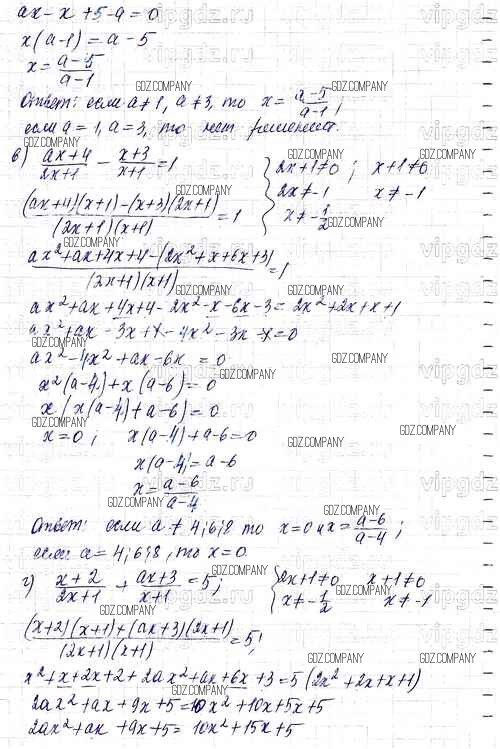 ax - x + 5 - a = 0
x(a-1) = a - 5
x = (a-5)/(a-1)
Ответ: если a ≠ 1, a ≠ 3, то x = (a-5)/(a-1);
если a = 1, a = 3, то нет решения.
в) (ax+4)/(2x+1) - (x+3)/(x+1) = 1 { 2x+1≠0; x+1≠0
2x≠-1 x≠-1
x≠-1/2
((ax+4)(x+1)-(x+3)(2x+1))/((2x+1)(x+1)) = 1
(ax²+ax+4x+4-(2x²+x+6x+3))/((2x+1)(x+1)) = 1
ax²+ax+4x+4-2x²-x-6x-3=2x²+2x+x+1
ax²+ax-3x+1-4x²-3x-1=0
ax²-4x²+ax-6x = 0
x²(a-4)+x(a-6)=0
x(x(a-4)+a-6)=0
x=0; x(a-4)+a-6=0
x(a-4)=a-6
x=(a-6)/(a-4)
Ответ: если a ≠ 4;6;8 то x=0 и x=(a-6)/(a-4);
если a=4;6;8, то x=0
г) (x+2)/(2x+1) + (ax+3)/(x+1) = 5; { 2x+1≠0 x+1≠0
x≠-1/2 x≠-1
((x+2)(x+1)+(ax+3)(2x+1))/((2x+1)(x+1)) = 5;
x²+x+2x+2+2ax²+ax+6x+3=5(2x²+2x+x+1)
2ax²+ax+9x+5=10x²+10x+5x+5
2ax²+ax+9x+5=10x²+15x+5
vipgdz
GDZ.COMPANY